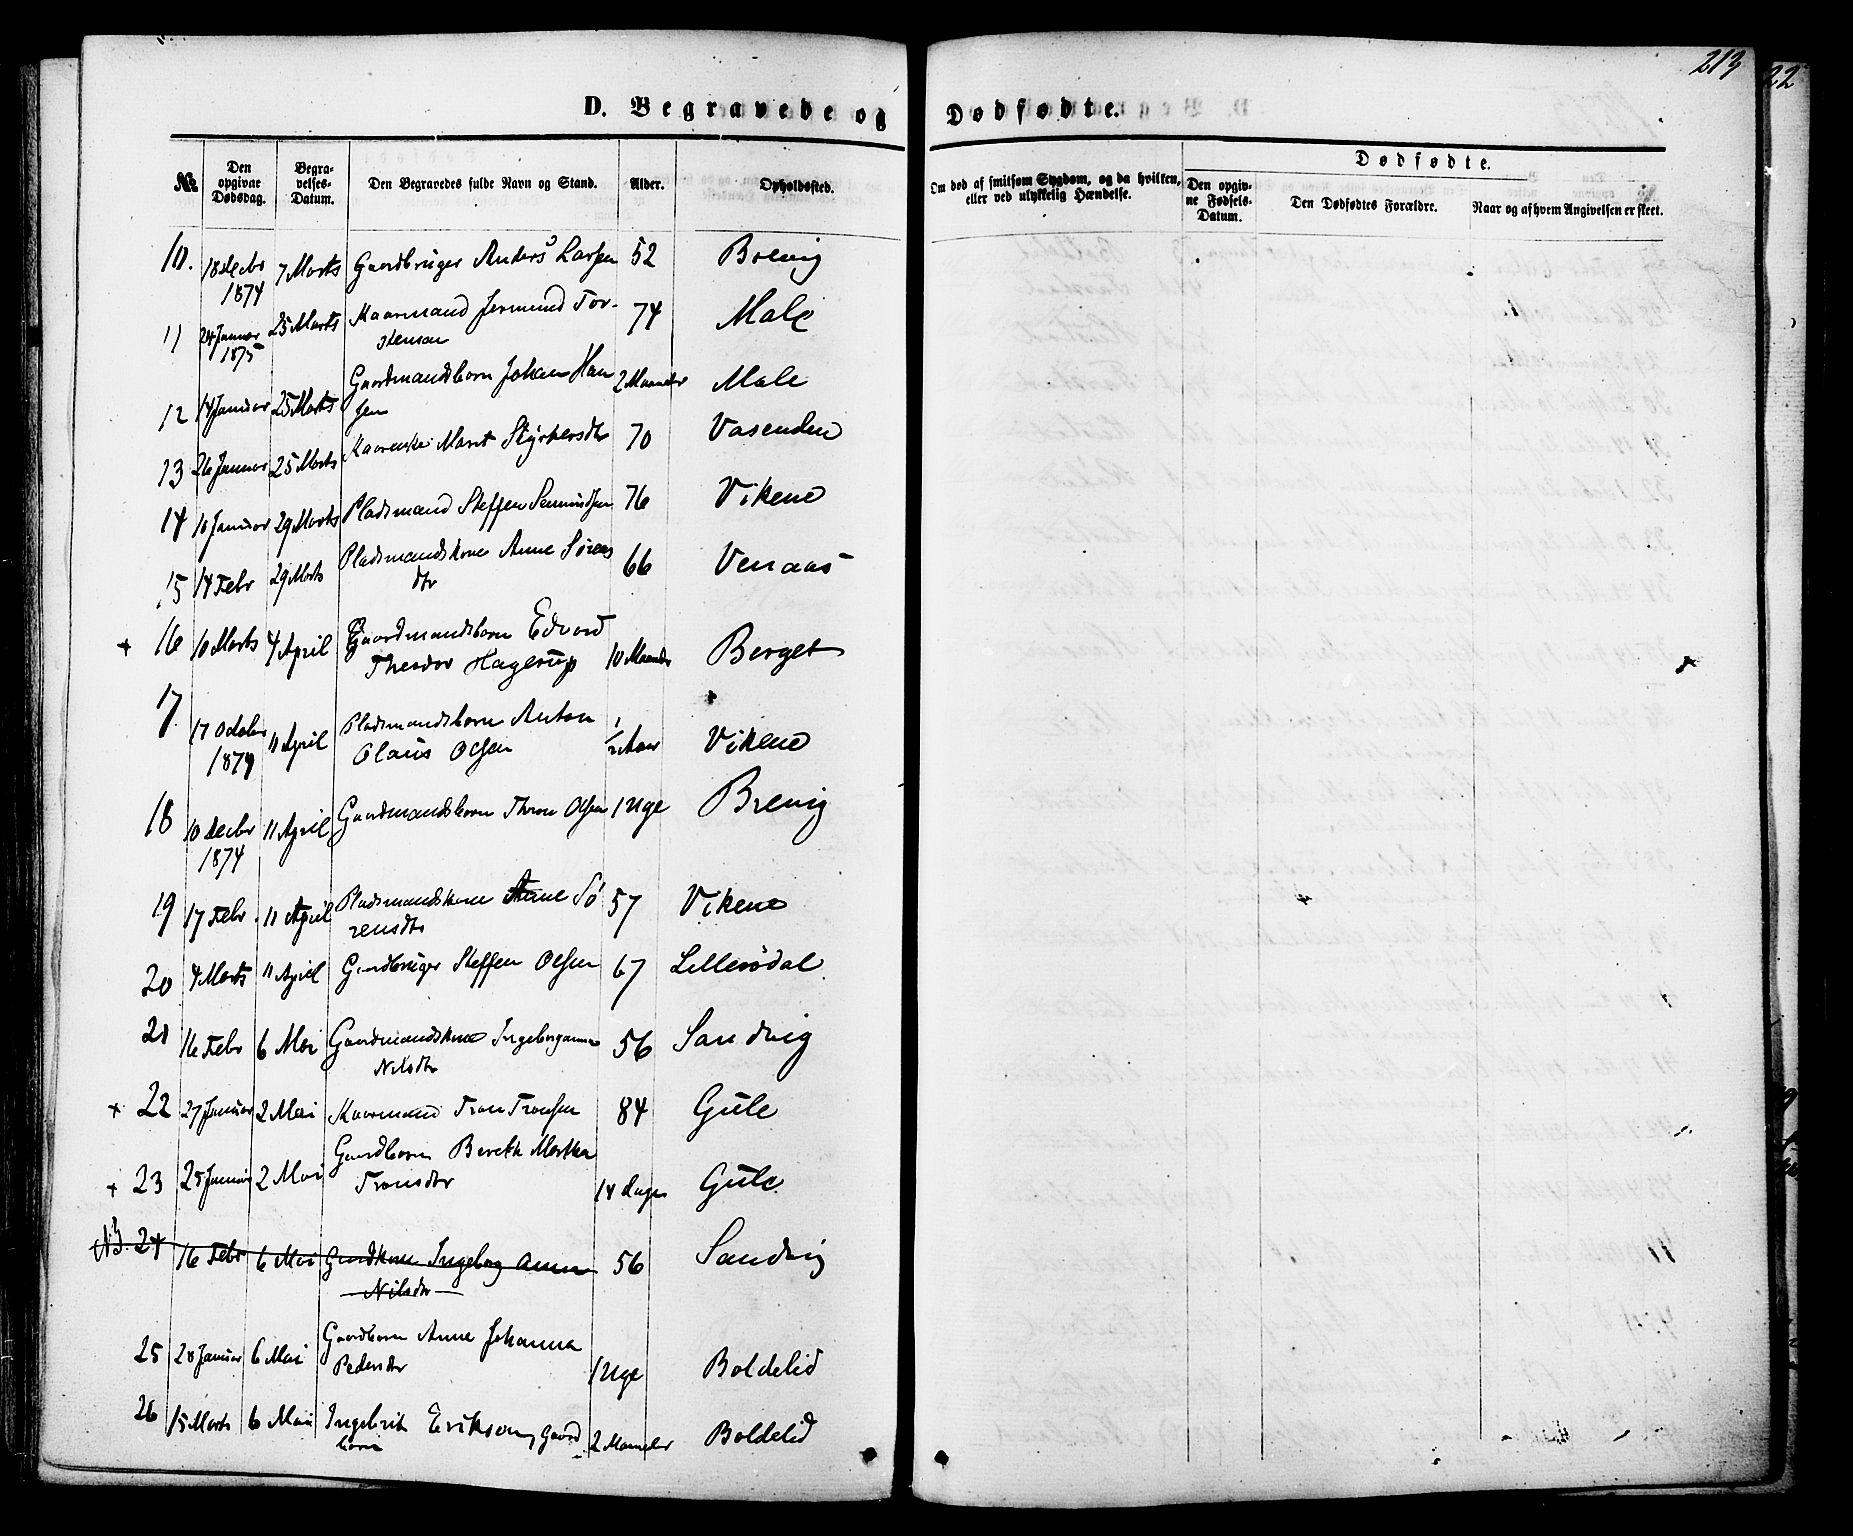 213
22
D. Begravede og Dødfødte.
№ Den opgivne Dødsdag. Begravelses-Datum. Den Begravedes fulde Navn og Stand. Alder. Opholdssted. Om død af smitsom Sygdom, og da hvilken, eller ved ulykkelig Hændelse. Dødfødte. Den opgivne Fødsels-Datum. Den Dødfødtes Forældre. Naar og af hvem Angivelsen er skeet.
10. 18 Decbr 7 Marts Gaardbruger Anders Larsen 52 Brevig
1874
11 24 Januar 25 Marts Kaarmand Jermund Tor- 74 Male
1875 stensen
12 14 Januar 25 Marts Gaardmandsbarn Johan Han 2 Maaneder Male
sen
13 26 Januar 25 Marts Kaarenke Marit Styrkersdtr 70 Vasenden
14 10 Januar 29 Marts Pladsmand Steffen Semundsen 76 Vikene
15 14 Febr 29 Marts Pladsmandskone Anne Sørens 66 Venaas
dtr
+ 16 10 Marts 4 April Gaardmandsbarn Edvard
Theodor Hagerup 10 Maaneder Berget
17. 17 October 11 April Pladsmandsbarn Anton 1/2 Aar Vikene
1874 Olaus Olsen
18 10 Decbr 11 April Gaardmandsbarn Thron Olsen 1 Uge Brevig
1874
19 17 Febr. 11 April Pladsmandskone Anne Sø 57 Vikene
rensdtr
20 4 Marts 11 April Gaardbruger Steffen Olsen 67 Lillerødal
21 16 Febr 6 Mai Gaardmandskone Ingeborganna 56 Sandvig
Nilsdtr
+ 22 27 Januar 2 Mai Kaarmand Tron Tronsen 84 Gule
+ 23 25 Januar 2 Mai Gaardbarn Bereth Martha
Tronsdtr 14 Dage Gule
NB. 24 16 Febr 6 Mai Gaardkone Ingeborg Anna 56 Sandvig
Nilsdtr
25 28 Januar 6 Mai Gaardbarn Anne Johanna
Pedersdtr 1 Uge Boldelid
26 15 Marts 6 Mai Ingebrit Erikson, Gaard 2 Maaneder Boldelid
barn